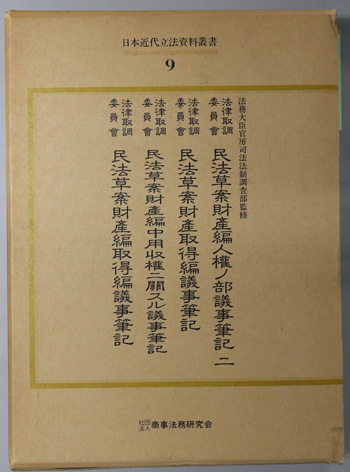 日本近代立法資料叢書
9
法務大臣官房司法法制調査部監修
法律取調委員會 民法草案財產編人權ノ部議事筆記 二
法律取調委員會 民法草案財產取得編議事筆記
法律取調委員會 民法草案財產編中用収權ニ關スル議事筆記
法律取調委員會 民法草案財產編取得編議事筆記
社団法人 商事法務研究会